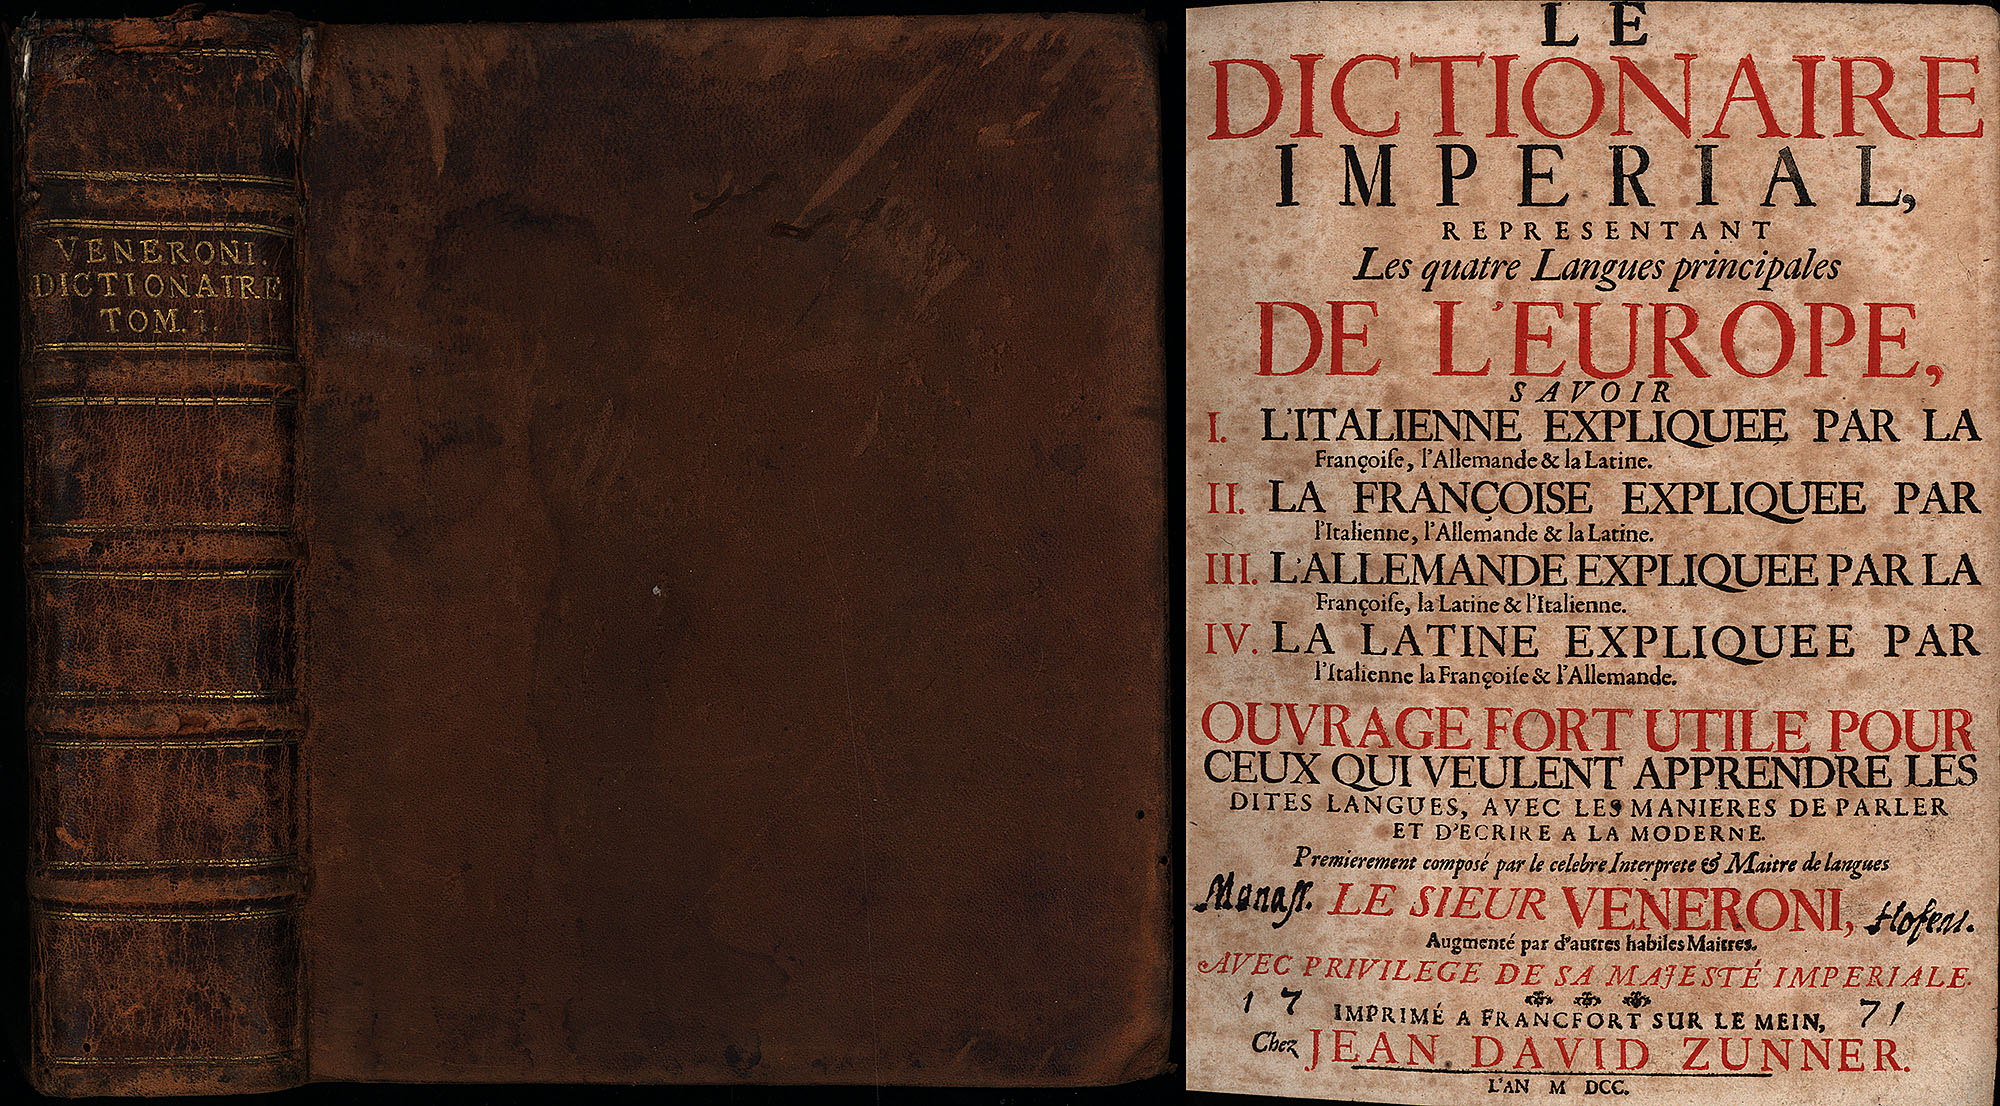 VENERONI.
DICTIONAIRE
TOM. I.
LE
DICTIONAIRE
IMPERIAL,
REPRESENTANT
Les quatre Langues principales
DE L'EUROPE,
SAVOIR
I. L'ITALIENNE EXPLIQUEE PAR LA
Françoiſe, l'Allemande & la Latine.
II. LA FRANÇOISE EXPLIQUEE PAR
l'Italienne, l'Allemande & la Latine.
III. L'ALLEMANDE EXPLIQUEE PAR LA
Françoiſe, la Latine & l'Italienne.
IV. LA LATINE EXPLIQUEE PAR
l'Italienne la Françoiſe & l'Allemande.
OUVRAGE FORT UTILE POUR
CEUX QUI VEULENT APPRENDRE LES
DITES LANGUES, AVEC LES MANIERES DE PARLER
ET D'ECRIRE A LA MODERNE.
Premierement composé par le celebre Interprete & Maitre de langues
Monaſt. LE SIEUR VENERONI,
Augmenté par d'autres habiles Maitres.
AVEC PRIVILEGE DE SA MAJESTÉ IMPERIALE.
17 IMPRIMÉ A FRANCFORT SUR LE MEIN, 71
Chez JEAN DAVID ZUNNER.
L'AN M DCC.